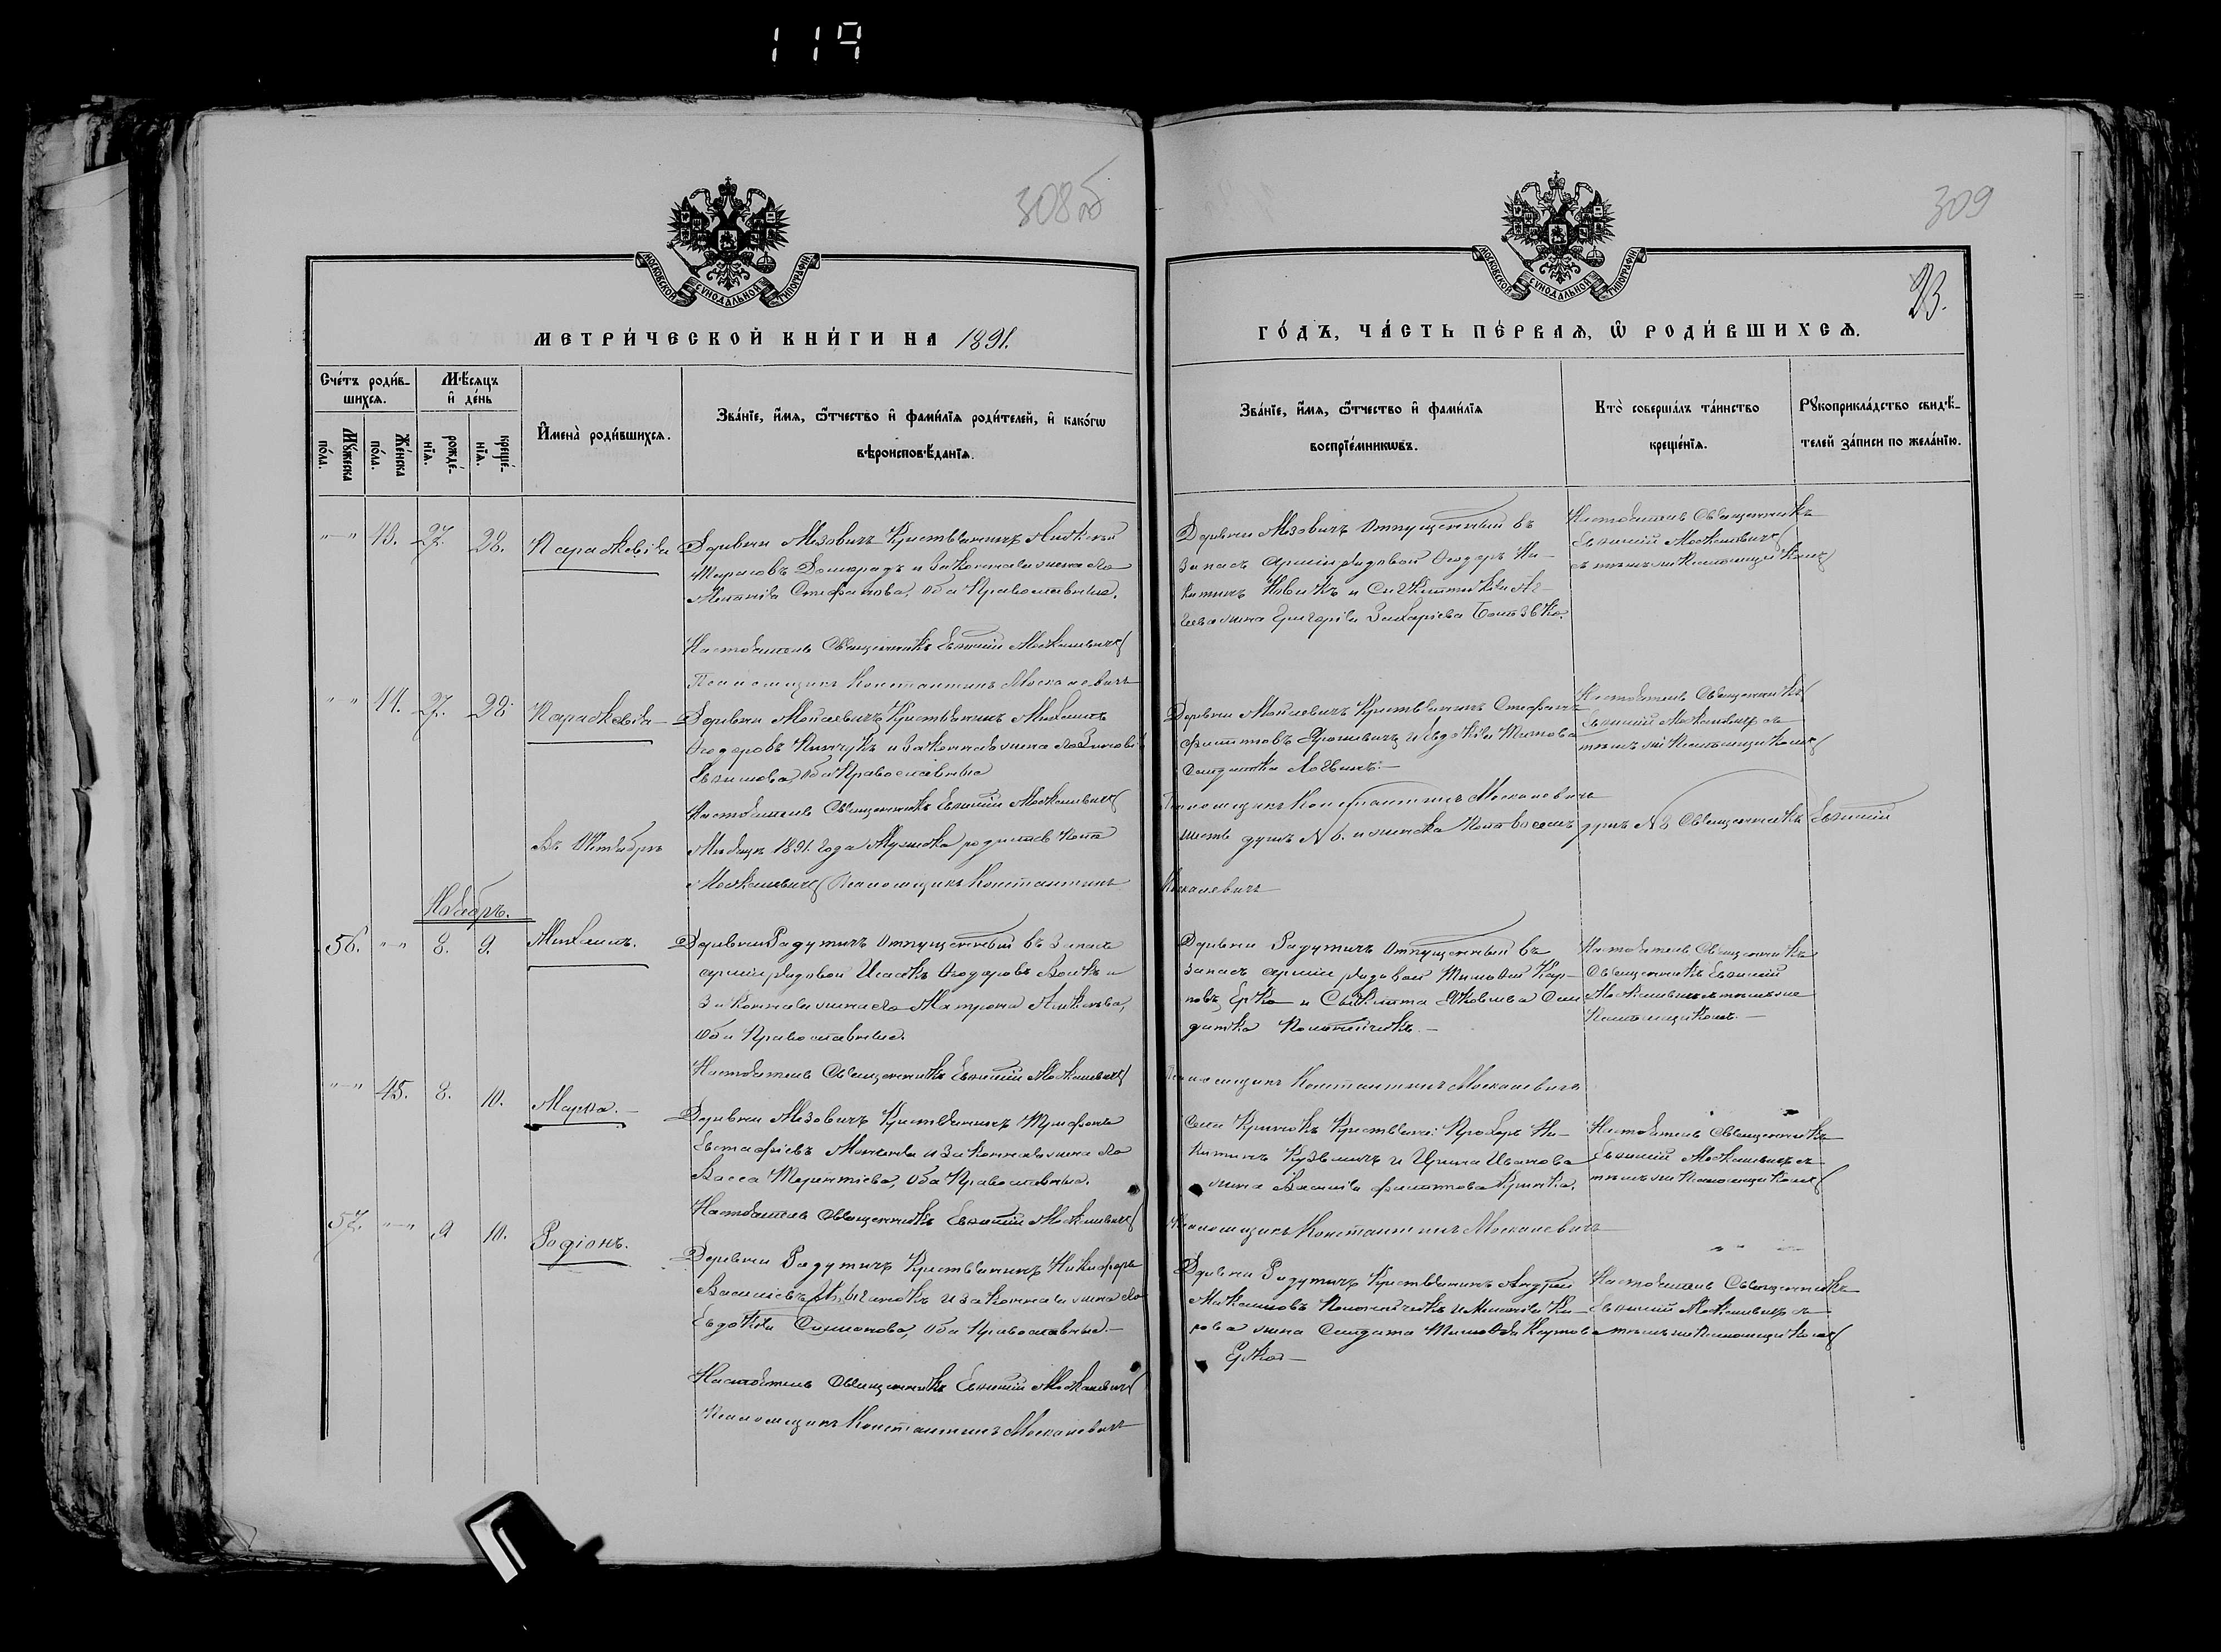 119
308об
МОСКОВСКОЙ СѴНОДАЛЬНОЙ ТИПОГРАФІИ
МЕТРИ́ЧЕСКОЙ КНИ́ГИ НА 1891.
Сче́тъ роди́в-
шихсѧ.
Мѣ́сѧцъ
и҆ де́нь
Мꙋ́жеска
по́ла.
Же́нска
по́ла.
рожде́-
нїѧ.
креще́-
нїѧ.
И҆мена̀ роди́вшихсѧ.
Зва́нїе, и҆́мѧ, ѻ҆́тчество и҆ фами́лїѧ роди́телей, и҆ како́гѡ
вѣроисповѣ́данїѧ.
13. 27. 28. Параскевія
Деревни Мезовичъ Крестьянинъ Алексѣй
Тарасовъ Доморадъ и Законная жена его
Стефанова, оба Православные.
Настоятель Священникъ Евѳимій Москалевичъ
Псаломщикъ Константинъ Москалевичъ
44. 27. 28. Параскевія
Деревни Крестьянинъ Михаилъ
Ѳеодоровъ Кинчукъ и Законная жена его Зиновія
Евѳимова, оба Православные
Настоятель Священникъ Евѳимій Москалевичъ
Въ Октябрѣ
Мѣсяцѣ 1891 года Мужеска родилось
Москалевичъ Псаломщикъ Константинъ
Ноябрь.
56. 8. 9. Михаилъ.
Деревни Радутичъ Отпущенный въ Запасъ
арміи рядовой Исаакъ Ѳеодоровъ и
Законная жена его Матрона
Оба Православные.
Настоятель Священникъ Евѳимій Москалевичъ
45. 8. 10. Марѳа.
Деревни Мезовичъ Крестьянинъ Трифонъ
Евстафіевъ и Законная жена его
Васса Терентіева, оба Православные.
Настоятель Священникъ Евѳимій Москалевичъ
57. 9 10. Родіонъ.
Деревни Радутичъ Крестьянинъ Никифоръ
Василіевъ и законная жена его
Евдокія Симонова, оба Православные.
Настоятель Священникъ Евѳимій Москалевичъ
Псаломщикъ Константинъ Москалевичъ
309
МОСКОВСКОЙ СѴНОДАЛЬНОЙ ТИПОГРАФІИ
23.
ГО́ДЪ, ЧА́СТЬ ПЕ́РВАѦ, Ѡ҆ РОДИ́ВШИХСѦ.
Зва́нїе, и҆́мѧ, ѻ҆́тчество и҆ фами́лїѧ
воспрїе́мникѡвъ.
Кто̀ соверша́лъ та́инство
креще́нїѧ.
Рꙋкоприкла́дство свидѣ́-
телей за́писи по жела́нїю.
Деревни Мезовичъ Отпущенный въ
Запасъ арміи рядовой Ѳеодоръ Ни-
китинъ Новикъ и
жена Григорія Захаріева
Настоятель Священникъ
Евѳимій Москалевичъ
съ тѣмъ же Псаломщикомъ
Деревни Крестьянинъ Стефанъ
Филиповъ и Евдокія
Солдатка
Настоятель Священникъ
Евѳимій Москалевичъ съ
тѣмъ же Псаломщикомъ
Псаломщикъ Константинъ Москалевичъ
душъ и женска душъ Священникъ Евѳимій
Москалевичъ
Деревни Радутичъ Отпущенный въ
запасъ арміи рядовой Тимоѳей Кар-
повъ Ерко и Яковлева Сол-
датка
Настоятель Священникъ
Священникъ Евѳимій
Москалевичъ съ тѣмъ же
Псаломщикомъ.
Псаломщикъ Константинъ Москалевичъ
Села Крестьяне: Прохоръ Ни-
китинъ Кузьмичъ и Ирина Иванова
жена Василія Филиппова
Настоятель Священникъ
Евѳимій Москалевичъ съ
тѣмъ же Псаломщикомъ
Псаломщикъ Константинъ Москалевичъ
Деревни Радутичъ Крестьянинъ Андрей
Максимовъ и
жена Солдата Тимоѳея Карпова
Ерко
Настоятель Священникъ
Евѳимій Москалевичъ съ
тѣмъ же Псаломщикомъ